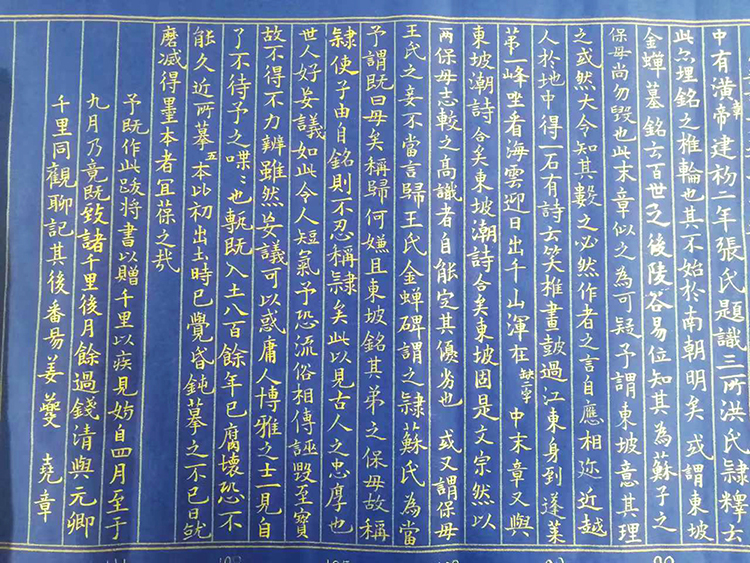 中有漢章帝建初二年張氏題識三所洪氏隸釋云
此亦埋銘之椎輪也其不始於南朝明矣或謂東坡
金蟬墓銘云百世之後陵谷易位知其為蘇子之
保母尚勿毀也此末章似之為可疑予謂東坡意其理
之或然大令知其數之必然作者之言自應相迩近越
人於地中得一石有詩云笑椎畫鼓過江東身到蓬萊
第一峰坐看海雲迎日出千山渾在缺二字中末章又與
東坡潮詩合矣東坡潮詩合矣東坡固是文宗然以
兩保母志較之高識者自能定其優劣也 或又謂保母
王氏之妾不當言歸王氏金蟬碑謂之隸蘇氏為當
予謂既曰母矣稱歸何嫌且東坡銘其弟之保母故稱
隸使子由自銘則不忍稱隸矣此以見古人之忠厚也
世人好妄議如此令人短氣予恐流俗相傳誣毀至寶
故不得不力辨雖然妄議可以惑庸人博雅之士一見自
了不待予之喋〻也甎既入土八百餘年已腐壞恐不
能久近一兩摹五本比初出土時已覺昏鈍摹之不已日就
磨滅得墨本者宜葆之哉
予既作此跋將書以贈千里以疾見妨自四月至于
九月乃竟既致諸千里後月餘過錢清與元卿
千里同觀聊記其後番昜姜夔 堯章